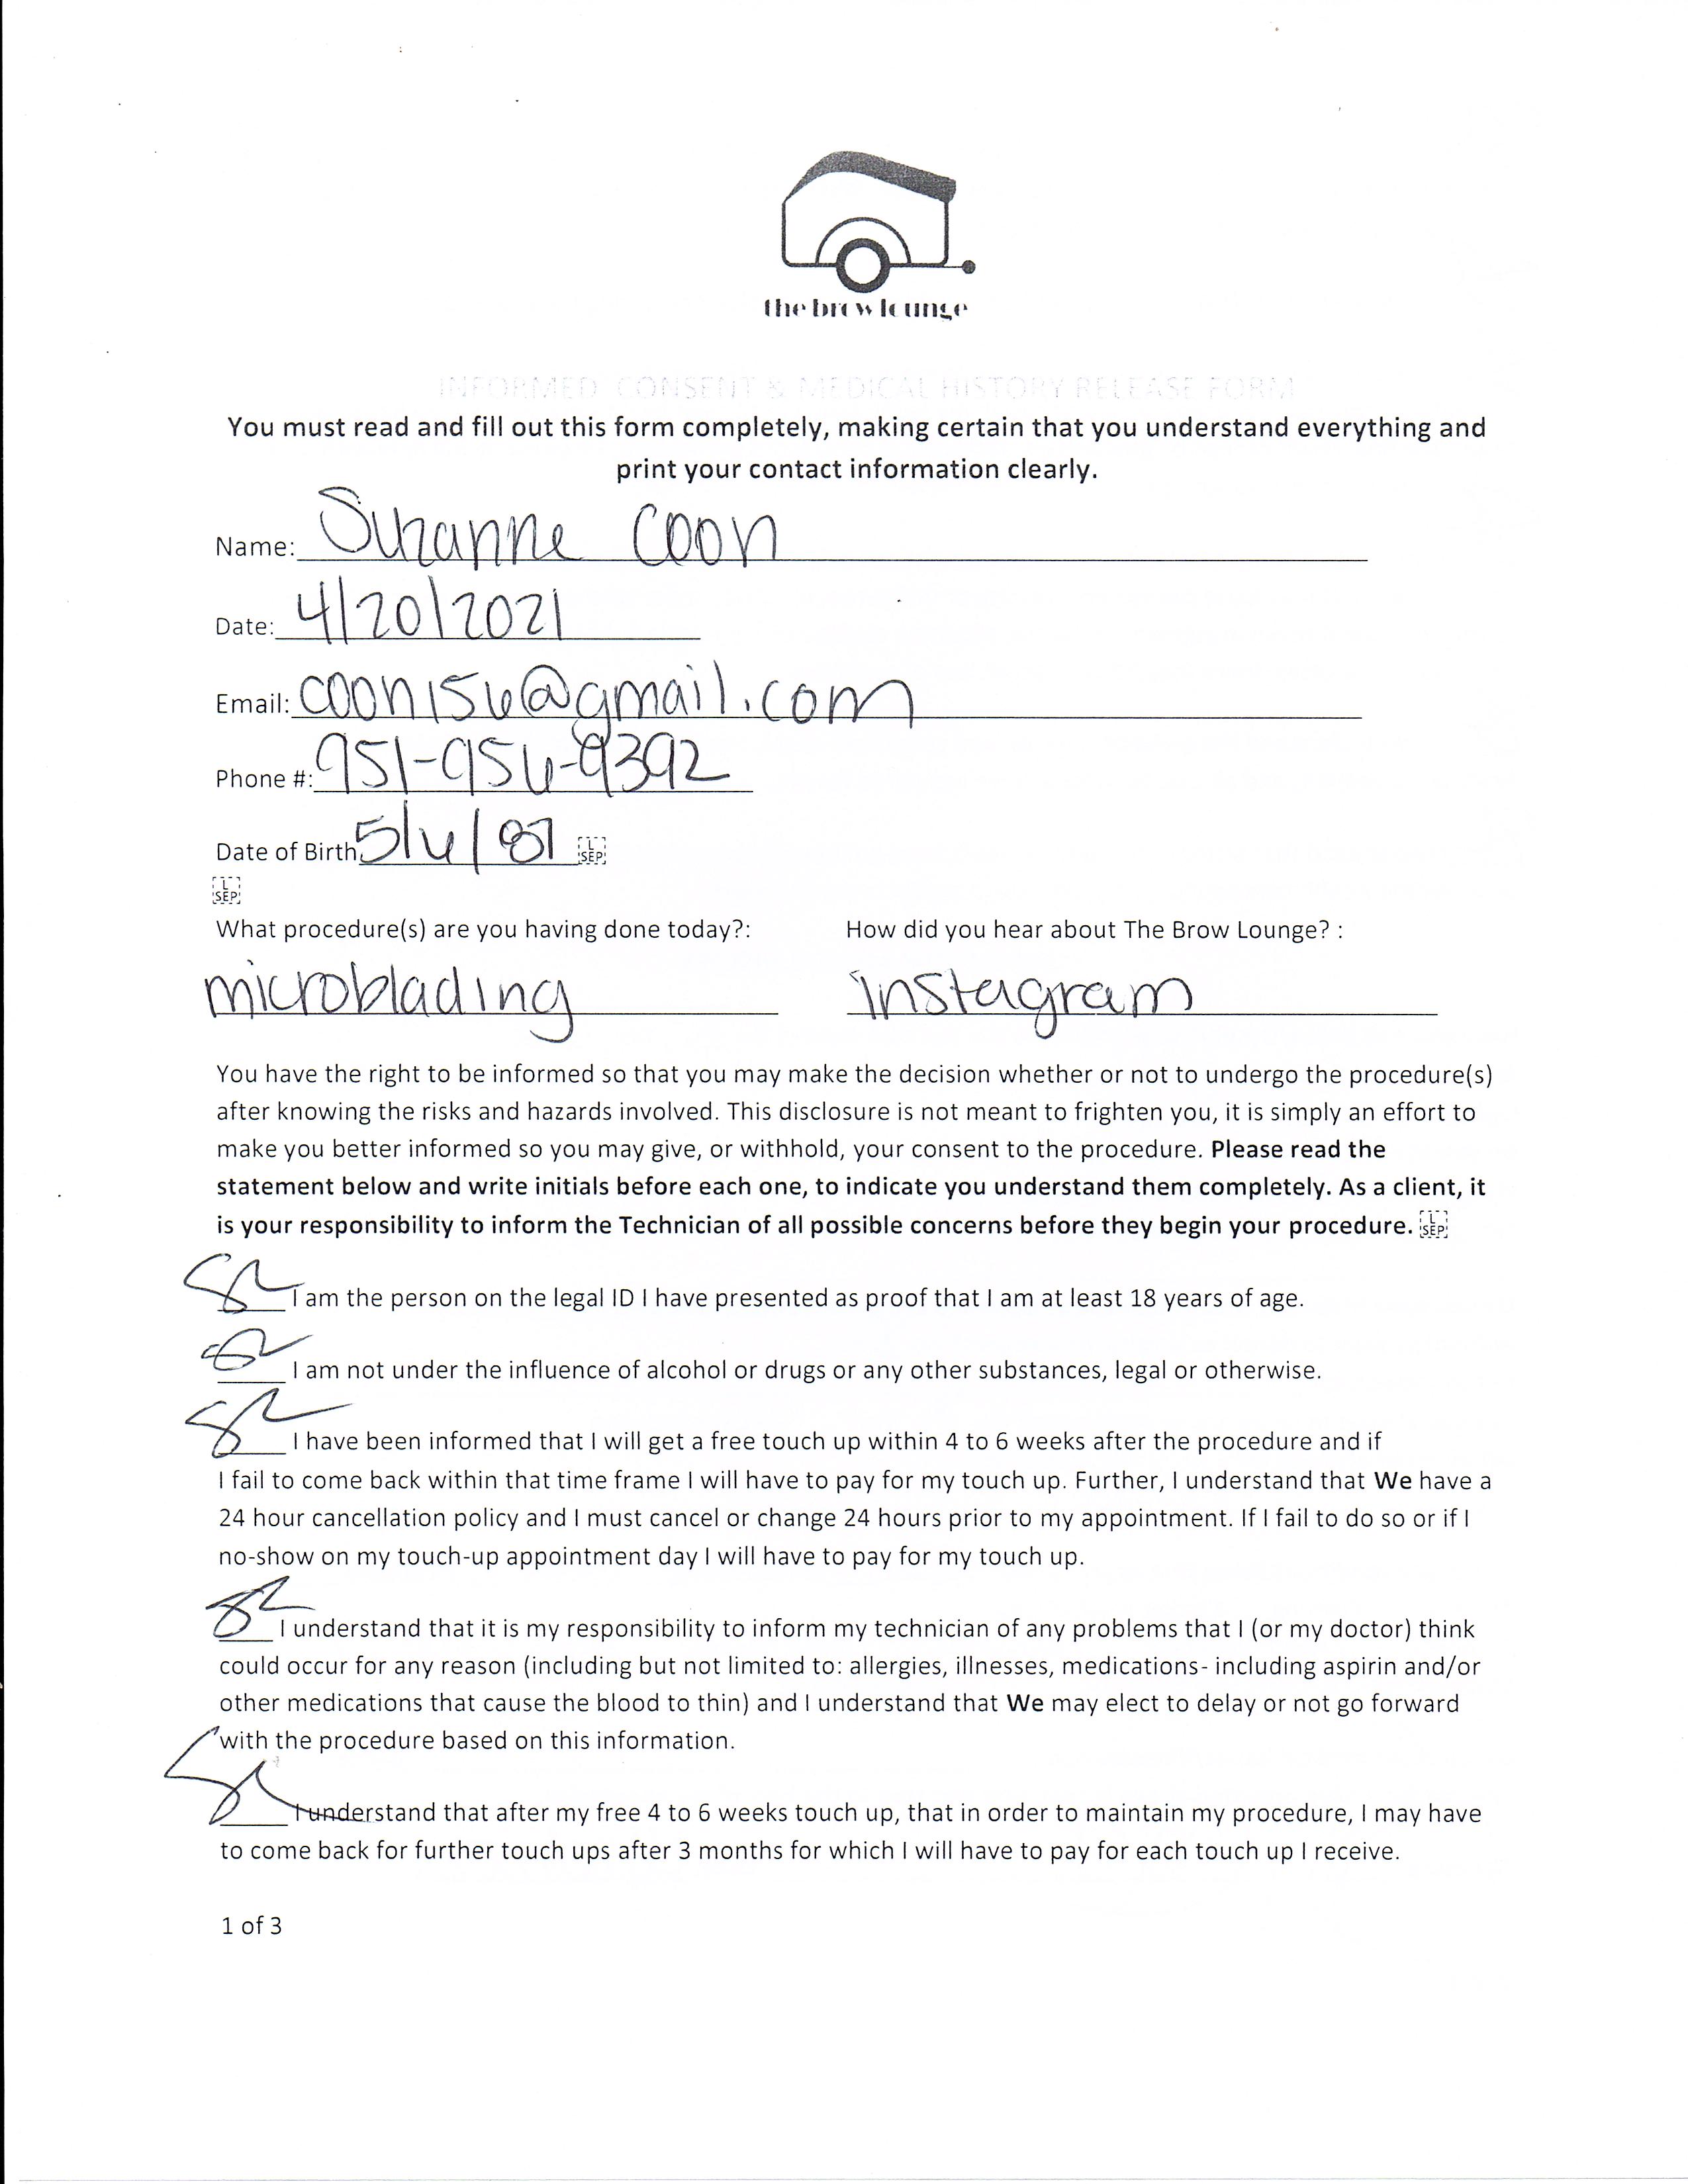 the brow lounge
INFORMED CONSENT & MEDICAL HISTORY RELEASE FORM
You must read and fill out this form completely, making certain that you understand everything and
print your contact information clearly.
Name: Suzanne Coon
Date: 4/20/2021
Email: coon156@gmail.com
Phone #: 951-956-9392
Date of Birth 5/6/87 L SEP
L SEP
What procedure(s) are you having done today?: How did you hear about The Brow Lounge? :
microblading instagram
You have the right to be informed so that you may make the decision whether or not to undergo the procedure(s)
after knowing the risks and hazards involved. This disclosure is not meant to frighten you, it is simply an effort to
make you better informed so you may give, or withhold, your consent to the procedure. Please read the
statement below and write initials before each one, to indicate you understand them completely. As a client, it
is your responsibility to inform the Technician of all possible concerns before they begin your procedure. L SEP
SC I am the person on the legal ID I have presented as proof that I am at least 18 years of age.
SC I am not under the influence of alcohol or drugs or any other substances, legal or otherwise.
SC I have been informed that I will get a free touch up within 4 to 6 weeks after the procedure and if
I fail to come back within that time frame I will have to pay for my touch up. Further, I understand that We have a
24 hour cancellation policy and I must cancel or change 24 hours prior to my appointment. If I fail to do so or if I
no-show on my touch-up appointment day I will have to pay for my touch up.
SC I understand that it is my responsibility to inform my technician of any problems that I (or my doctor) think
could occur for any reason (including but not limited to: allergies, illnesses, medications- including aspirin and/or
other medications that cause the blood to thin) and I understand that We may elect to delay or not go forward
with the procedure based on this information.
SC I understand that after my free 4 to 6 weeks touch up, that in order to maintain my procedure, I may have
to come back for further touch ups after 3 months for which I will have to pay for each touch up I receive.
1 of 3